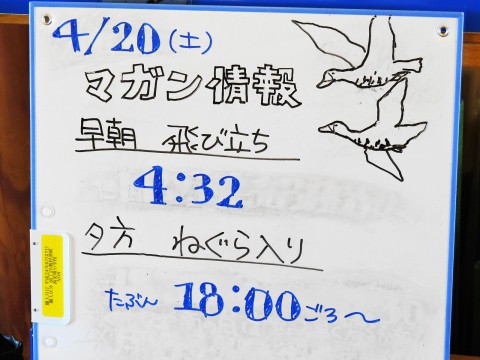 4/20(土)
マガン情報
早朝 飛び立ち
4:32
夕方 ねぐら入り
たぶん 18:00ごろ〜